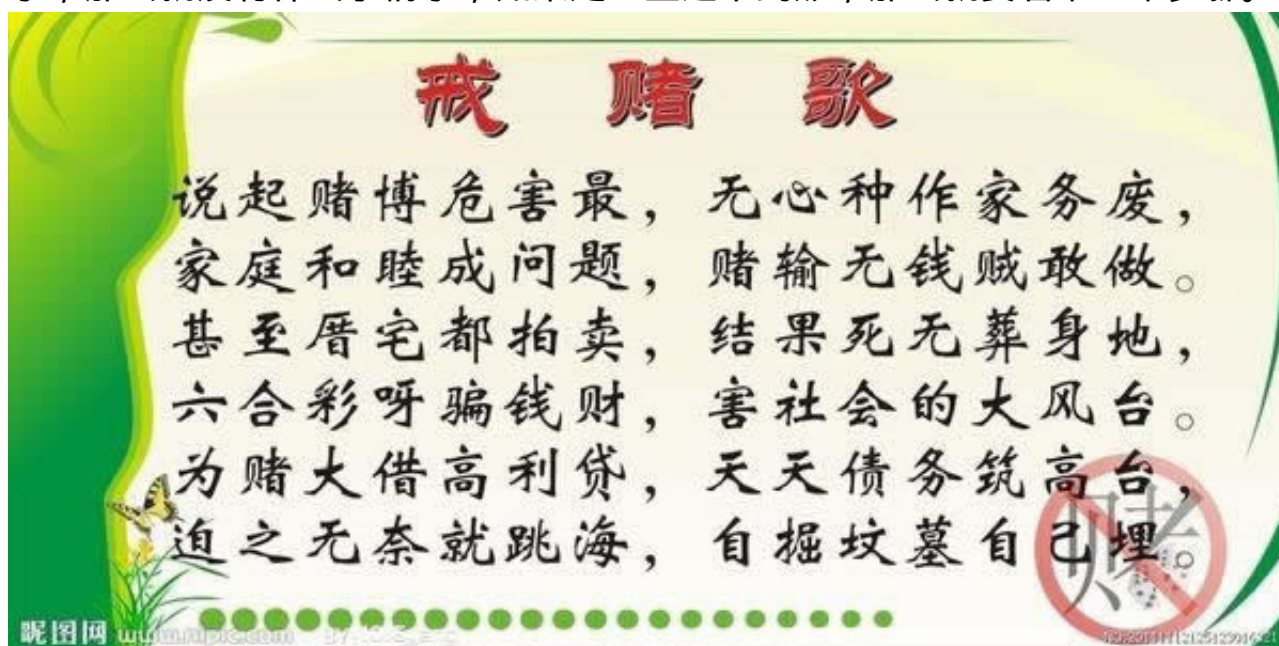 戒赌歌
说起赌博危害最，无心种作家务废，
家庭和睦成问题，赌输无钱贼敢做。
甚至厝宅都拍卖，结果死无葬身地，
六合彩呀骗钱财，害社会的大风台。
为赌大借高利贷，天天债务筑高台，
迫之无奈就跳海，自掘坟墓自己埋
赌
昵图网 www.nipic.com